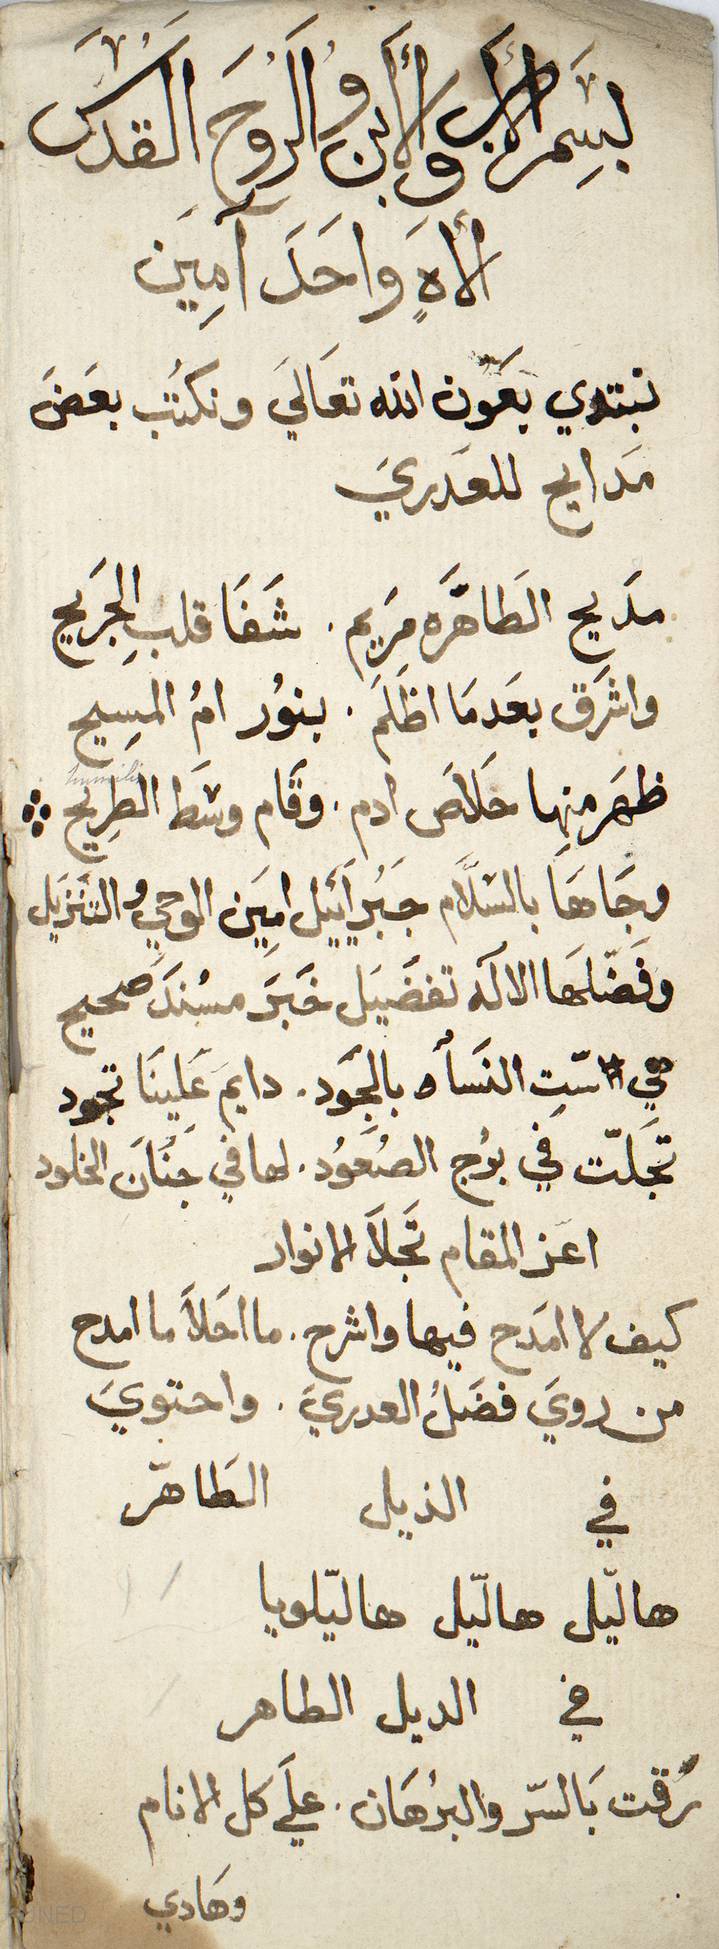 بِسَمِ الأبَ والأبن والرُوحَ القدَسَ
ألاهَ واحَدَ آمِيَن
نبتدي بعَون الله تعَاليَ ونكتُب بعَضَ
مَدايح للعَدريَ
مدَيح الطَاهَره مرَيم . شَفَا قلبِ الجَريح
واشَرَق بعَدمَا اظَلَمَ . بنوُر امُ المسِيح
humilis
ظهَر مِنِها خَلاصَ ادم . وقَام وسَط الطِريَح
وجَاهَا بالسَلَام جبَرايَيل امِيَن الوحي والتَنزيَل
وفَضّلهَا الالَه تفضَيَل خَبَرَ مسُندَ صحيح
هي سّتِ النَسأ بالجَود . دايمَ عَليِنَا تجود
تجَلّت في برُج الصُعَوُد . لها في جَنَان الخلود
اعَز المقام تَجَلاَ الانوار
كيف لا امَدح فيها واشرح . ما احَلاَ ما امدح
من رويَ فضَلُ العدريَ . واحتويَ
في الذيل الطَاهّر
هاليّل هاليّل هاليّلويا
في الديل الطاهر
رُقت بَالسّر والبرُهَان . علَي كل الانام
وهَادي
UNED